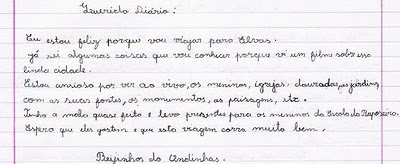 Querido Diário:
Eu estou feliz porque vou viajar para Elvas.
Já sei algumas coisas que vou conhecer porque vi um filme sobre essa
linda cidade.
Estou ansioso por ver ao vivo, os meninos, igrejas douradas, os jardins,
com as suas fontes, os monumentos, as paisagens, etc.
Tenho a mala quase feita e levo presentes para os meninos da Escola da Raposeira.
Espero que eles gostem e que esta viagem corra muito bem.
Beijinhos do Andinhas.